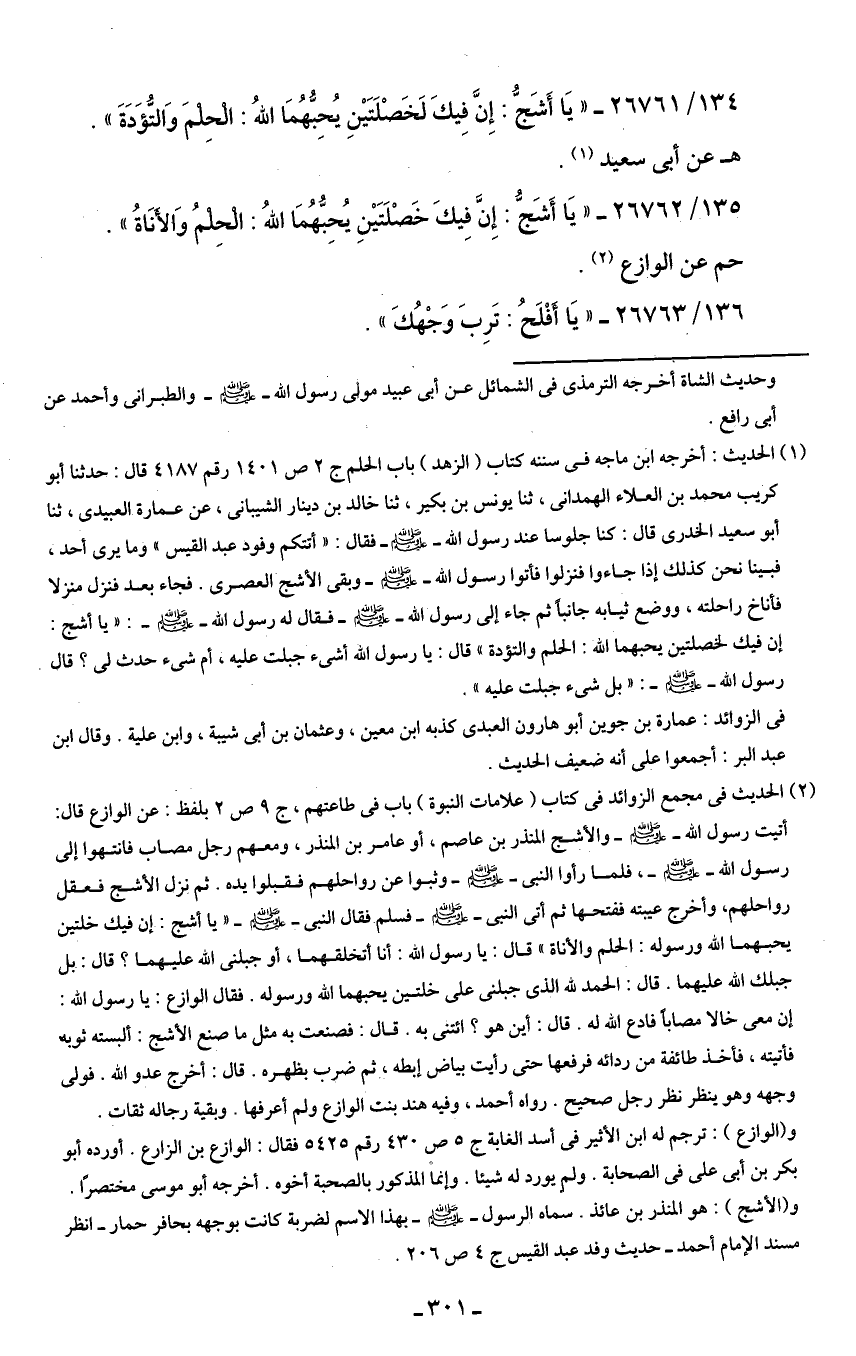 ١٣٤/ ٢٦٧٦١ ـ « يَا أَشَجُّ : إِنَّ فِيكَ لَخَصْلَتَيْنِ يُحِبُّهُمَا اللهُ : الْحِلْمَ وَالتُّؤَدَةَ » .
هـ عن أبى سعيد (١) .
١٣٥/ ٢٦٧٦٢ ـ « يَا أَشَجُّ : إِنَّ فِيكَ خَصْلَتَيْنِ يُحِبُّهُمَا اللهُ : الْحِلْمُ وَالأَنَاةُ » .
حم عن الوازع (٢) .
١٣٦/ ٢٦٧٦٣ ـ « يَا أَفْلَحُ : تَرِبَ وَجْهُكَ » .
وحديث الشاة أخرجه الترمذى فى الشمائل عن أبى عبيد مولى رسول الله ـ ﷺ ـ والطبرانى وأحمد عن
أبى رافع .
(١) الحديث : أخرجه ابن ماجه فى سننه كتاب ( الزهد ) باب الحلم ج ٢ ص ١٤٠١ رقم ٤١٨٧ قال : حدثنا أبو
كريب محمد بن العلاء الهمدانى ، ثنا يونس بن بكير ، ثنا خالد بن دينار الشيبانى ، عن عمارة العبيدى ، ثنا
أبو سعيد الخدرى قال : كنا جلوسا عند رسول الله ـ ﷺ ـ فقال : « أتتكم وفود عبد القيس » وما يرى أحد ،
فبينا نحن كذلك إذا جاءوا فنزلوا فأتوا رسول الله ـ ﷺ ـ وبقى الأشج العصرى . فجاء بعد فنزل منزلا
فأناخ راحلته ، ووضع ثيابه جانباً ثم جاء إلى رسول الله ـ ﷺ ـ فقال له رسول الله ـ ﷺ ـ : « يا أشج :
إن فيك لخصلتين يحبهما الله : الحلم والتؤدة » قال : يا رسول الله أشىء جبلت عليه ، أم شىء حدث لى ؟ قال
رسول الله ـ ﷺ ـ : « بل شىء جبلت عليه » .
فى الزوائد : عمارة بن جوين أبو هارون العبدى كذبه ابن معين ، وعثمان بن أبى شيبة ، وابن علية . وقال ابن
عبد البر : أجمعوا على أنه ضعيف الحديث .
(٢) الحديث فى مجمع الزوائد فى كتاب ( علامات النبوة ) باب فى طاعتهم ، ج ٩ ص ٢ بلفظ : عن الوازع قال:
أتيت رسول الله ـ ﷺ ـ والأشج المنذر بن عاصم ، أو عامر بن المنذر ، ومعهم رجل مصاب فانتهوا إلى
رسول الله ـ ﷺ ـ ، فلما رأوا النبى ـ ﷺ ـ وثبوا عن رواحلهم فقبلوا يده . ثم نزل الأشج فعقل
رواحلهم، وأخرج عيبته ففتحها ثم أتى النبى ـ ﷺ ـ فسلم فقال النبى ـ ﷺ ـ « يا أشج : إن فيك خلتين
يحبهما الله ورسوله : الحلم والأناة » قال : يا رسول الله : أنا أتخلقهما ، أو جبلنى الله عليهما ؟ قال : بل
جبلك الله عليهما . قال : الحمد لله الذى جبلنى على خلتين يحبهما الله ورسوله . فقال الوازع : يا رسول الله :
إن معى خالا مصاباً فادع الله له . قال : أين هو ؟ ائتنى به . قال : فصنعت به مثل ما صنع الأشج : ألبسته ثوبه
فأتيته ، فأخذ طائفة من ردائه فرفعها حتى رأيت بياض إبطه ، ثم ضرب بظهره . قال : أخرج عدو الله . فولى
وجهه وهو ينظر نظر رجل صحيح . رواه أحمد ، وفيه هند بنت الوازع ولم أعرفها . وبقية رجاله ثقات .
و(الوازع ) : ترجم له ابن الأثير فى أسد الغابة ج ٥ ص ٤٣٠ رقم ٥٤٢٥ فقال : الوازع بن الزارع . أورده أبو
بكر بن أبى على فى الصحابة . ولم يورد له شيئا . وإنما المذكور بالصحبة أخوه . أخرجه أبو موسى مختصرًا .
و(الأشج ) : هو المنذر بن عائذ . سماه الرسول ـ ﷺ ـ بهذا الاسم لضربة كانت بوجهه بحافر حمار ـ انظر
مسند الإمام أحمد ـ حديث وفد عبد القيس ج ٤ ص ٢٠٦ .
ـ ٣٠١ ـ